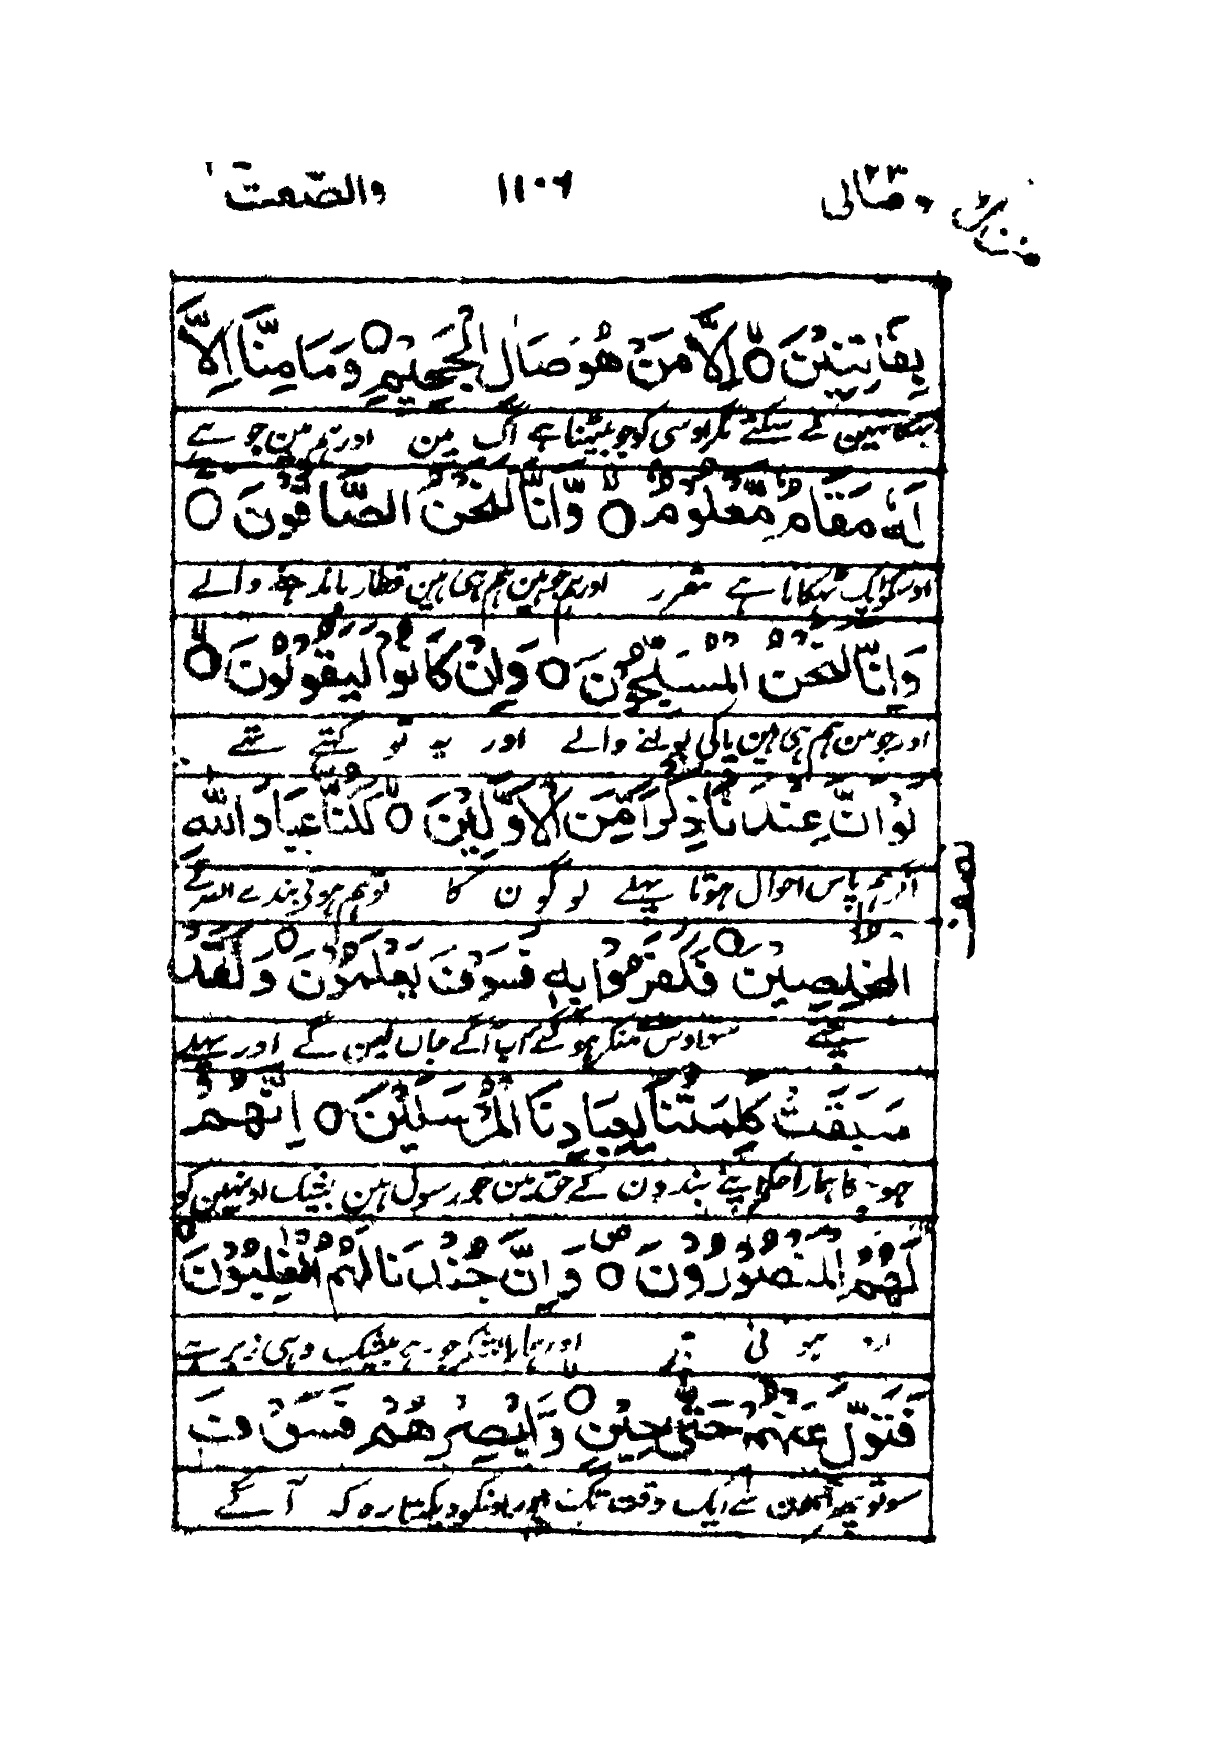 ومالی ۲۳ ۱۱۰۶ والصّٰفٰت
بِفَاتِنِيْنَ ۙ اِلَّا مَنْ هُوَ صَالِ الْجَحِيْمِ ○ وَمَا مِنَّا اِلَّا
بہکا نہین لے سکتے مگر اوسی کو جو بیٹھنا ہے آگ مین اور ہم مین جو ہے
لَهٗ مَقَامٌ مَّعْلُوْمٌ ۙ وَّاِنَّا لَنَحْنُ الصَّافُّوْنَ ○
اوسکو ایک ٹہکانا ہے مقرر اور ہم جو ہین ہم ہی ہین قطار باندہنے والے
وَاِنَّا لَنَحْنُ الْمُسَبِّحُوْنَ ○ وَاِنْ كَانُوْا لَيَقُوْلُوْنَ ۙ
اور ہم جو ہین ہم ہی ہین پاکی بولنے والے اور یہ تو کہتے تہے
لَوْ اَنَّ عِنْدَنَا ذِكْرًا مِّنَ الْاَوَّلِيْنَ ۙ لَكُنَّا عِبَادَ اللّٰهِ
اگر ہم پاس احوال ہوتا پہلے لوگون کا تو ہم ہوتے بندے اللہ کے
الْمُخْلَصِيْنَ ○ فَكَفَرُوْا بِهٖ فَسَوْفَ يَعْلَمُوْنَ ○ وَلَقَدْ
سو اوس منکر ہو گئے اب آگے جان لین گے اور پہلے
سَبَقَتْ كَلِمَتُنَا لِعِبَادِنَا الْمُرْسَلِيْنَ ○ اِنَّهُمْ
ہو چکا ہمارا حکم اپنے بندون کے حق مین جو رسول ہین بیشک اونہین کو
لَهُمُ الْمَنْصُوْرُوْنَ ○ وَاِنَّ جُنْدَنَا لَهُمُ الْغٰلِبُوْنَ
اور ہمارا لشکر جو ہے بیشک وہی زبر ہے
فَتَوَلَّ عَنْهُمْ حَتّٰى حِيْنٍ ○ وَّاَبْصِرْهُمْ فَسَوْفَ
سو تو پہر آ اون سے ایک وقت تک اور اونکو دیکہتا رہ کہ آگے